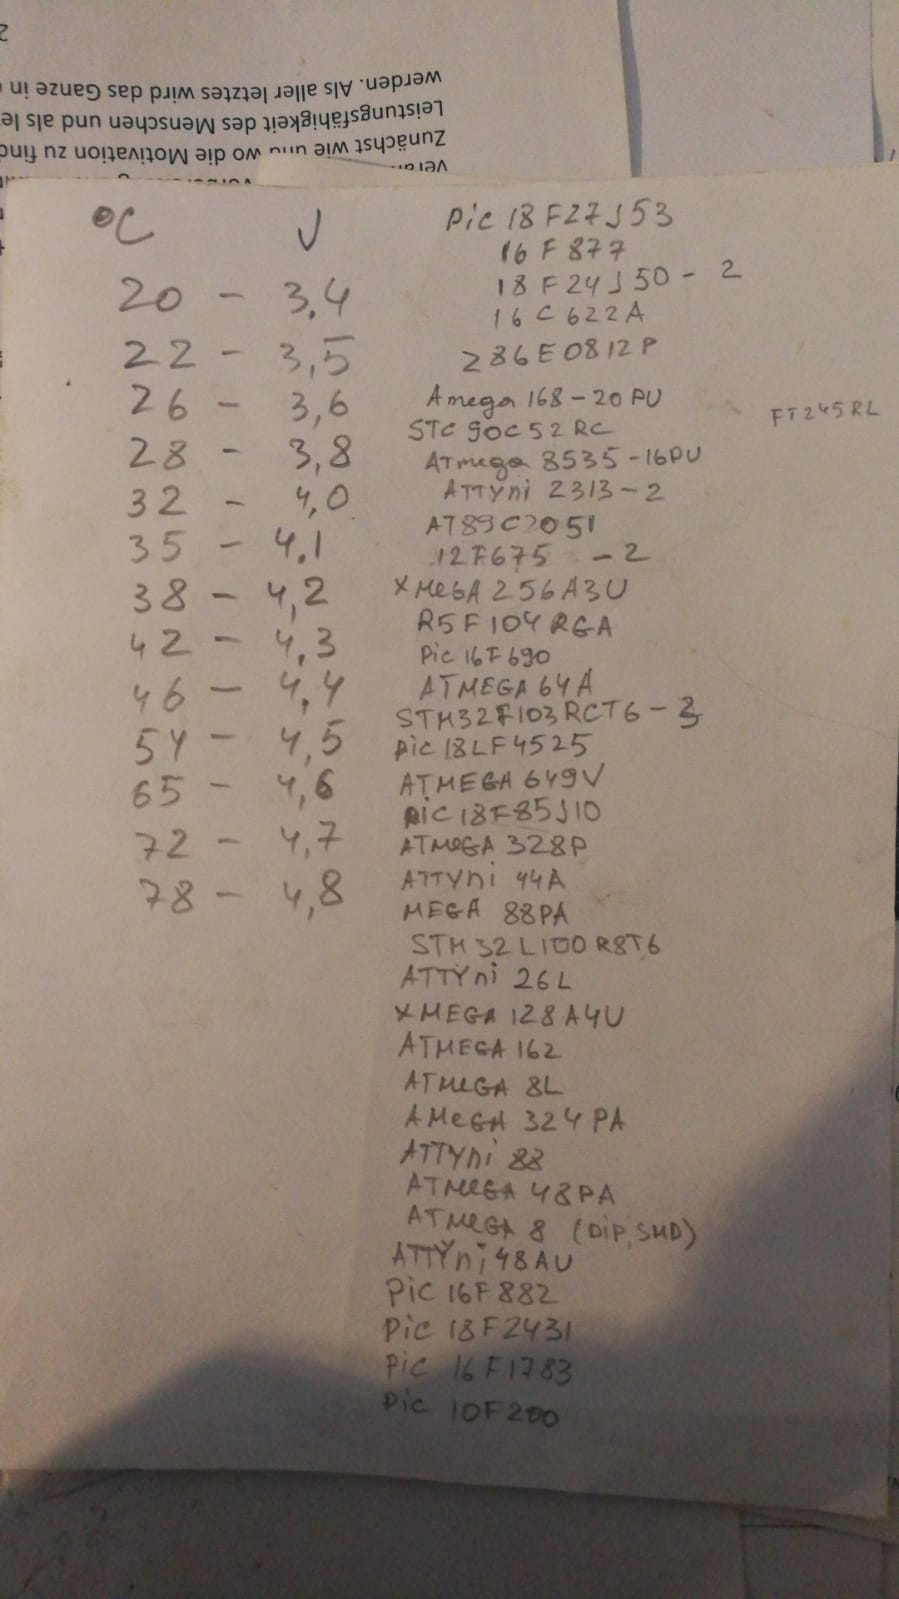 werden. Als aller letztes wird das Ganze in
Leistungsfähigkeit des Menschen und als
Zunächst wie und wo die Motivation zu
°C V
20 - 3,4
22 - 3,5
26 - 3,6
28 - 3,8
32 - 4,0
35 - 4.1
38 - 4,2
42 - 4,3
46 - 4,4
54 - 4,5
65 - 4,6
72 - 4,7
78 - 4,8
Pic 18F27J53
16F877
18F24J50 - 2
16C622A
Z86E0812P
Amega 168-20PU
STC 90C52RC
ATmega 8535-16PU
ATTYni 2313-2
AT89C2051
12F675 - 2
XMeGA 256A3U
R5F104RGA
Pic 16F690
ATMEGA 64A
STM32F103RCT6 - 3
pic 18LF4525
ATMEGA 649V
piC 18F85J10
ATMeGA 328P
ATTYni 44A
MEGA 88PA
STM32L100R8T6
ATTYni 26L
XMEGA 128A4U
ATMEGA 162
ATMeGA 8L
AMeGA 324PA
ATTYni 88
ATMeGA 48PA
ATMeGA 8 (DiP, SMD)
ATTYni 48AU
Pic 16F882
Pic 18F2431
Pic 16F1783
Pic 10F200
FT245RL